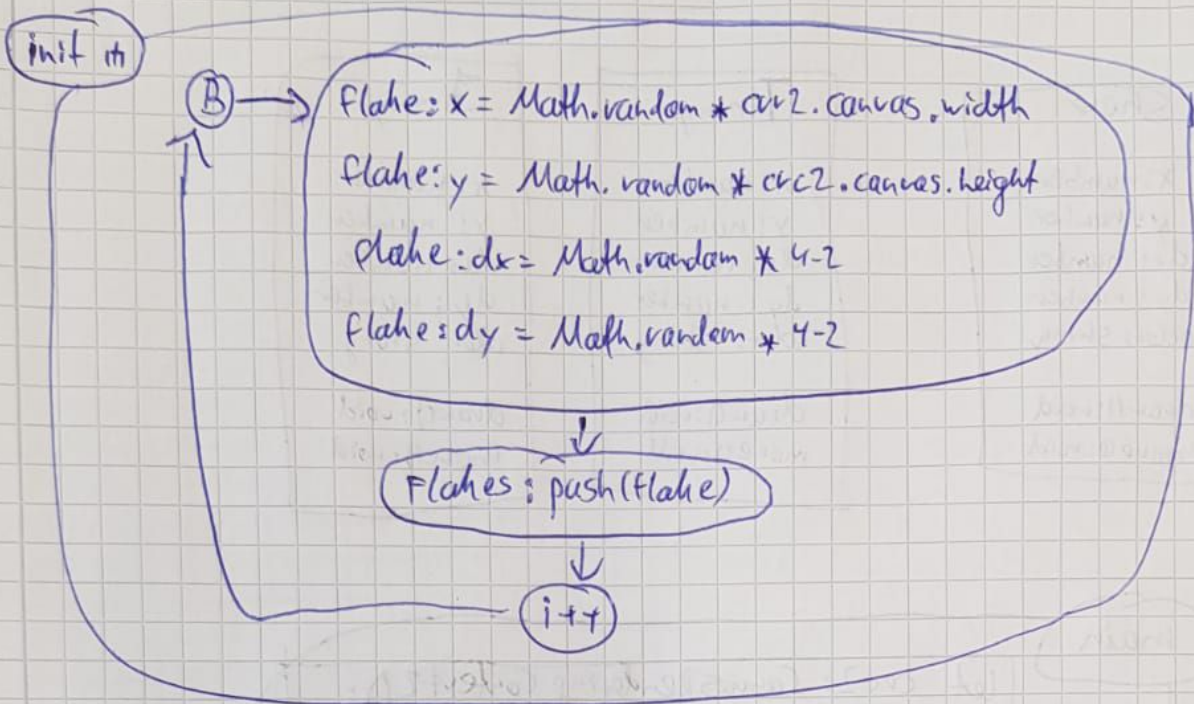 init
B
flake: x = Math.random * crc2.canvas.width
flake: y = Math.random * crc2.canvas.height
flake: dx = Math.random * 4-2
flake: dy = Math.random * 4-2
Flakes: push(flake)
i++